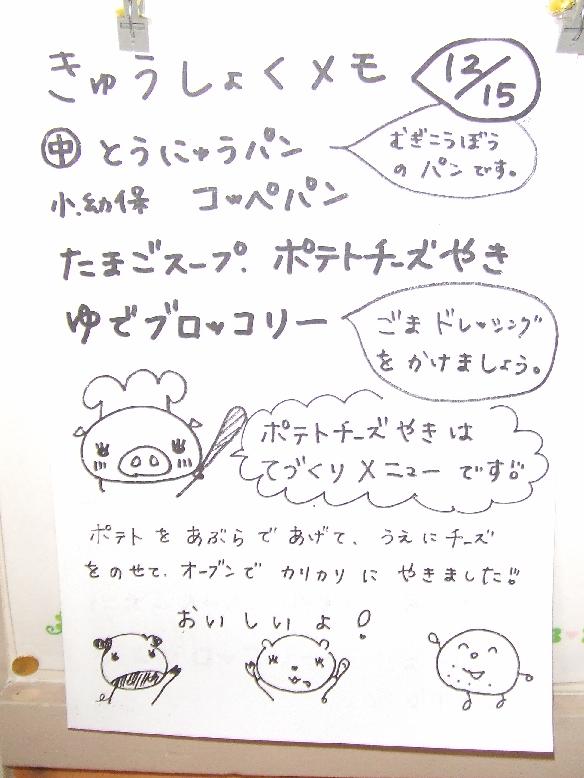 きゅうしょくメモ 12/15
中 とうにゅうパン
むぎこうぼう
の パン です。
小.幼保 コッペパン
たまごスープ. ポテトチーズやき
ゆでブロッコリー
ごま ドレッシング
を かけましょう。
ポテトチーズ やき は
てづくり メニュー です!!
ポテト を あぶら で あげて、 うえ に チーズ
を のせて. オーブン で カリカリ に やきました!!
おいしいよ!